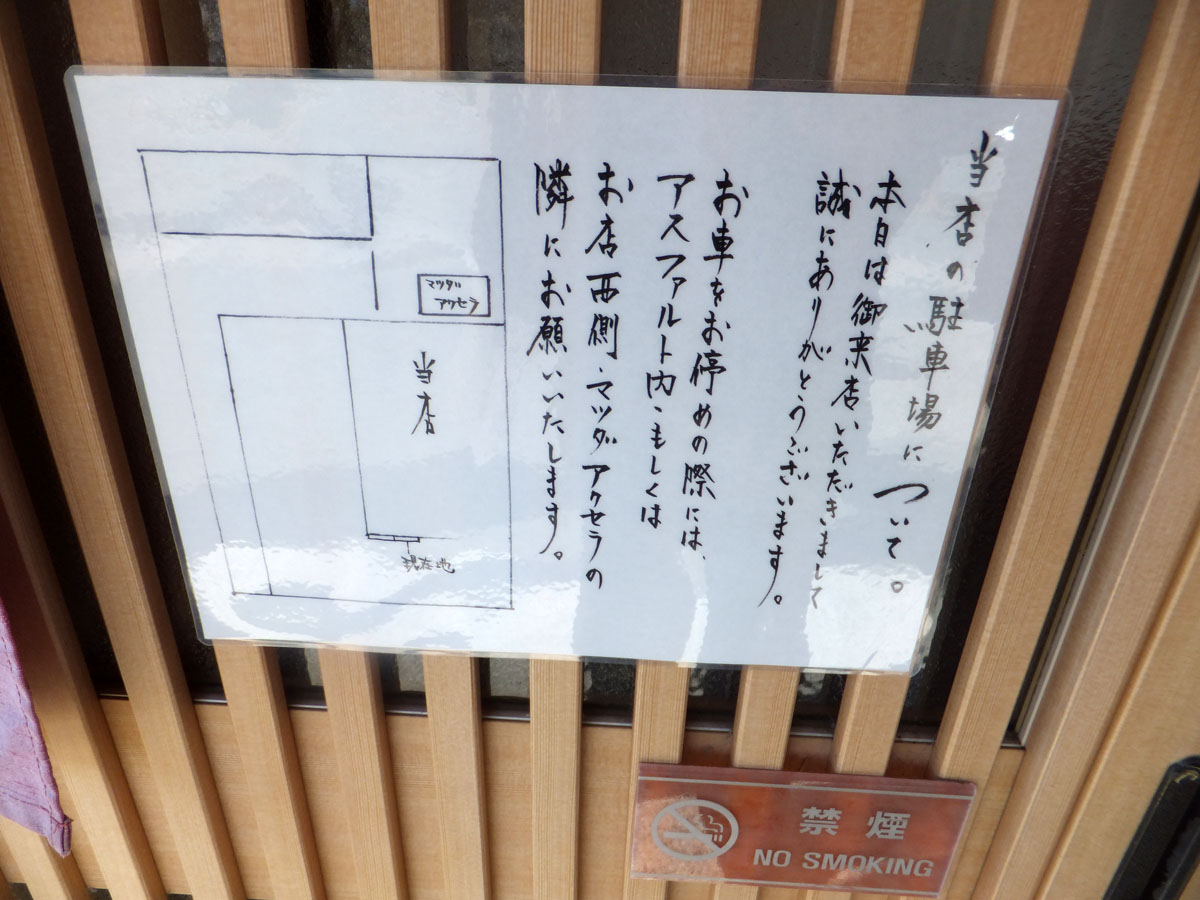 当店の駐車場について。
本日は御来店いただきまして
誠にありがとうございます。
お車をお停めの際には、
アスファルト内・もしくは
お店西側・マツダアクセラの
隣にお願いいたします。
マツダ
アクセラ
当店
現在地
禁煙
NO SMOKING